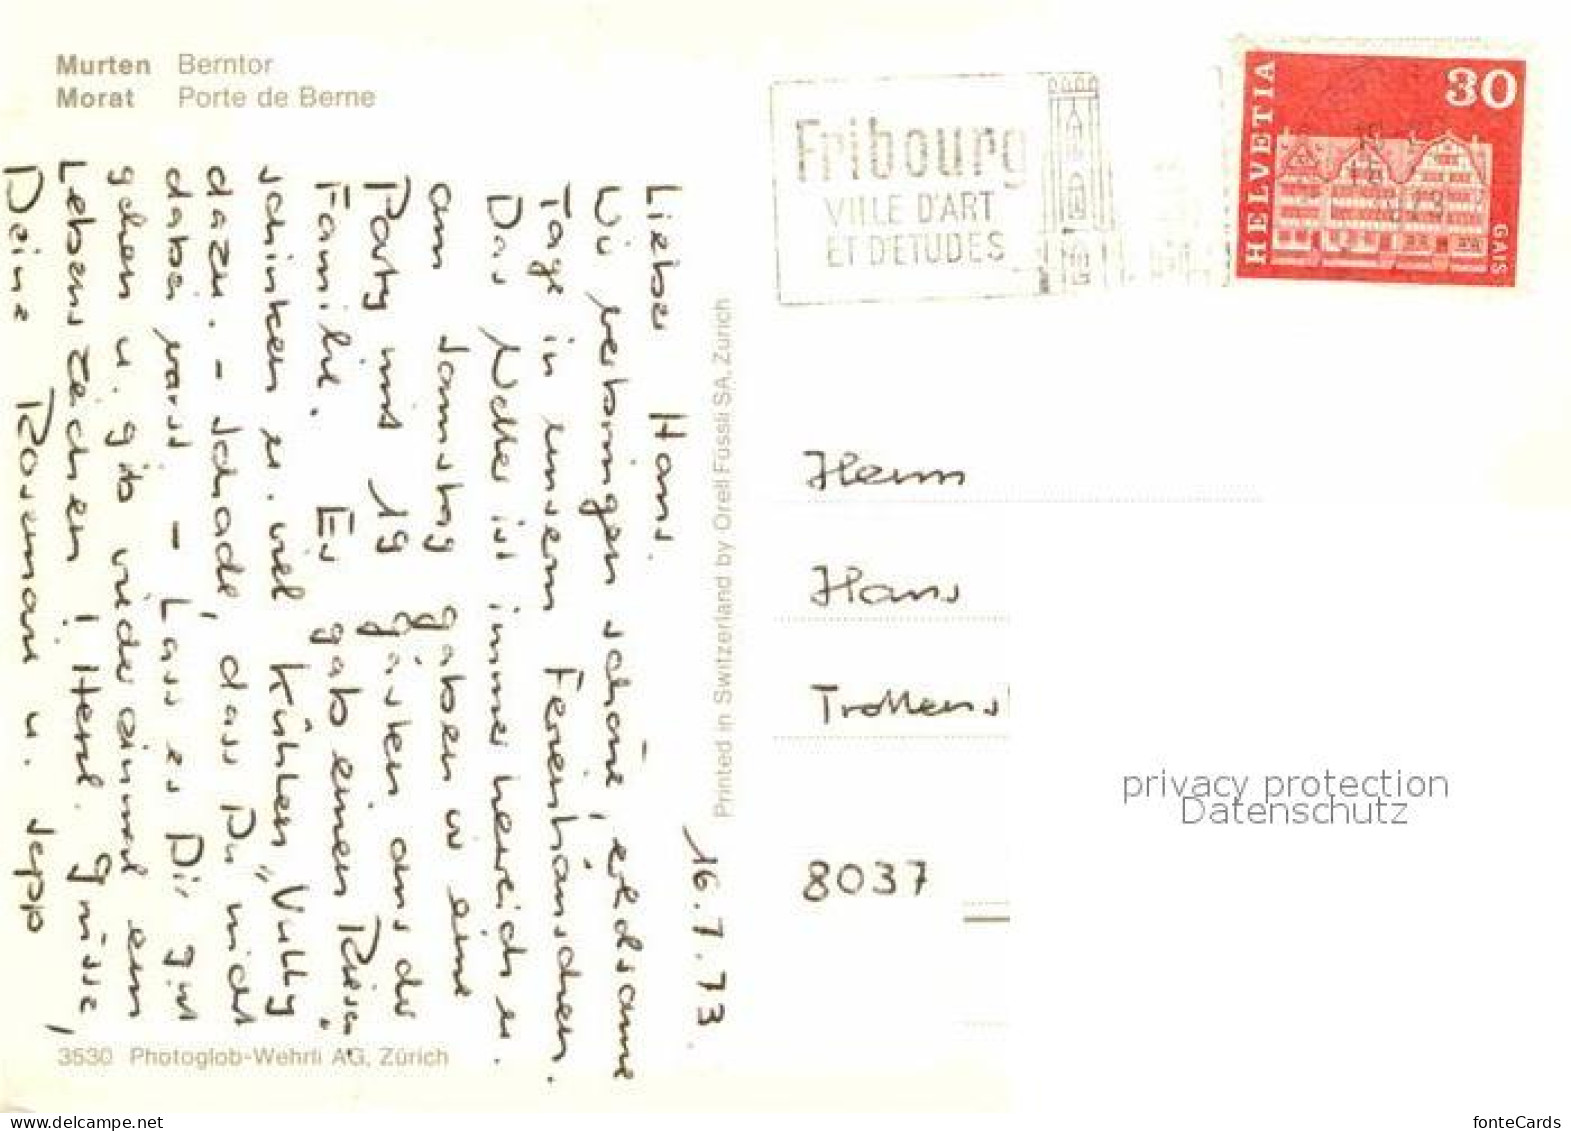 Murten Berntor
Morat Porte de Berne
16.7.73.
Lieber Hans.
Wir verbringen schöne, erholsame
Tage in unserm Ferienhäuschen.
Das Wetter ist immer herrlich u.
am Samstag gaben wir eine
Party mit 19 Gästen aus der
Familie. Es gab einen Riesen-
schinken u. viel kühlen "Vully"
dazu. - Schade, dass Du nicht
dabei warst. - Lass es Dir gut
gehen u. gib wieder einmal ein
Lebenszeichen! Herzl. Grüsse,
Deine Rosemarie u. Sepp
3530 Photoglob-Wehrli AG, Zürich
Printed in Switzerland by Orell Füssli SA, Zürich
Fribourg
VILLE D'ART
ET D'ETUDES
HELVETIA
30
GAIS
Herrn
Hans
8037
privacy protection
Datenschutz
www.delcampe.net
fonteCards